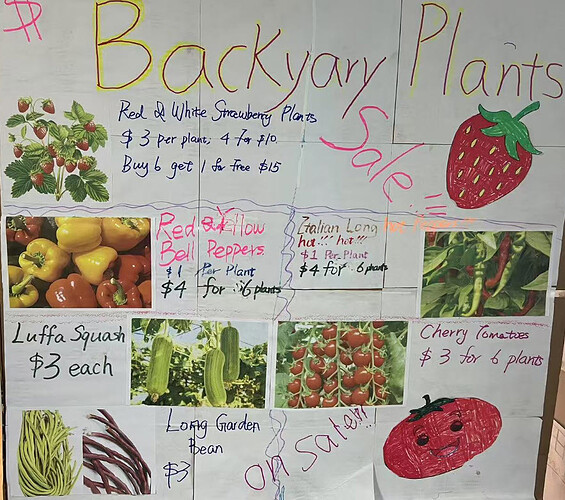 $
Backyary Plants
Sale!!!
Red & White Strawberry Plants
$3 per plant, 4 for $10
Buy 6 get 1 for free $15
Red & Yellow
Bell Peppers
$1 Per Plant
$4 for 6 plants
Italian Long hot
hot!!! hot!!!
$1 Per Plant
$4 for 6 plants
Luffa Squash
$3 each
Cherry Tomatoes
$3 for 6 plants
Long Garden
Bean
$3
on Sale!!!